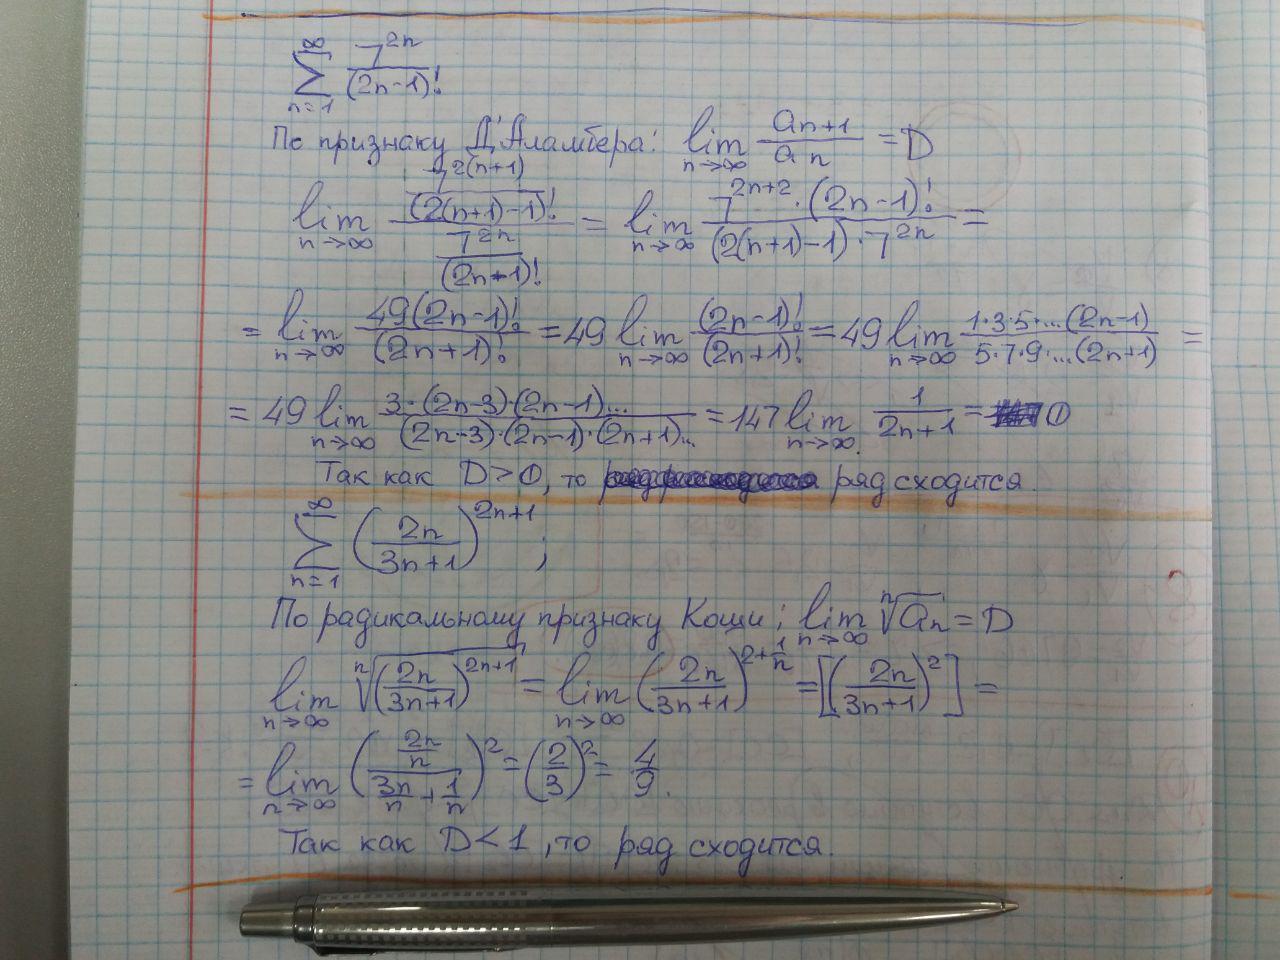 ∑_{n=1}^{∞} 7^{2n}/(2n-1)!
По признаку Д'Аламбера: lim_{n→∞} a_{n+1}/a_n = D
lim_{n→∞} (7^{2(n+1)}/(2(n+1)-1)!)/(7^{2n}/(2n-1)!) = lim_{n→∞} (7^{2n+2}·(2n-1)!)/((2(n+1)-1)·7^{2n}) =
= lim_{n→∞} 49(2n-1)!/(2n+1)! = 49 lim_{n→∞} (2n-1)!/(2n+1)! = 49 lim_{n→∞} (1·3·5·...(2n-1))/(5·7·9·...(2n+1)) =
= 49 lim_{n→∞} (3·(2n-3)·(2n-1)...)/((2n-3)·(2n-1)·(2n+1)...) = 147 lim_{n→∞} 1/(2n+1) = 0
Так как D>0, то ряд сходится.
∑_{n=1}^{∞} (2n/(3n+1))^{2n+1};
По радикальному признаку Коши; lim_{n→∞} ⁿ√a_n = D
lim_{n→∞} ⁿ√((2n/(3n+1))^{2n+1}) = lim_{n→∞} (2n/(3n+1))^{2+1/n} = [(2n/(3n+1))^2] =
= lim_{n→∞} ((2n/n)/(3n/n + 1/n))^2 = (2/3)^2 = 4/9.
Так как D<1, то ряд сходится.